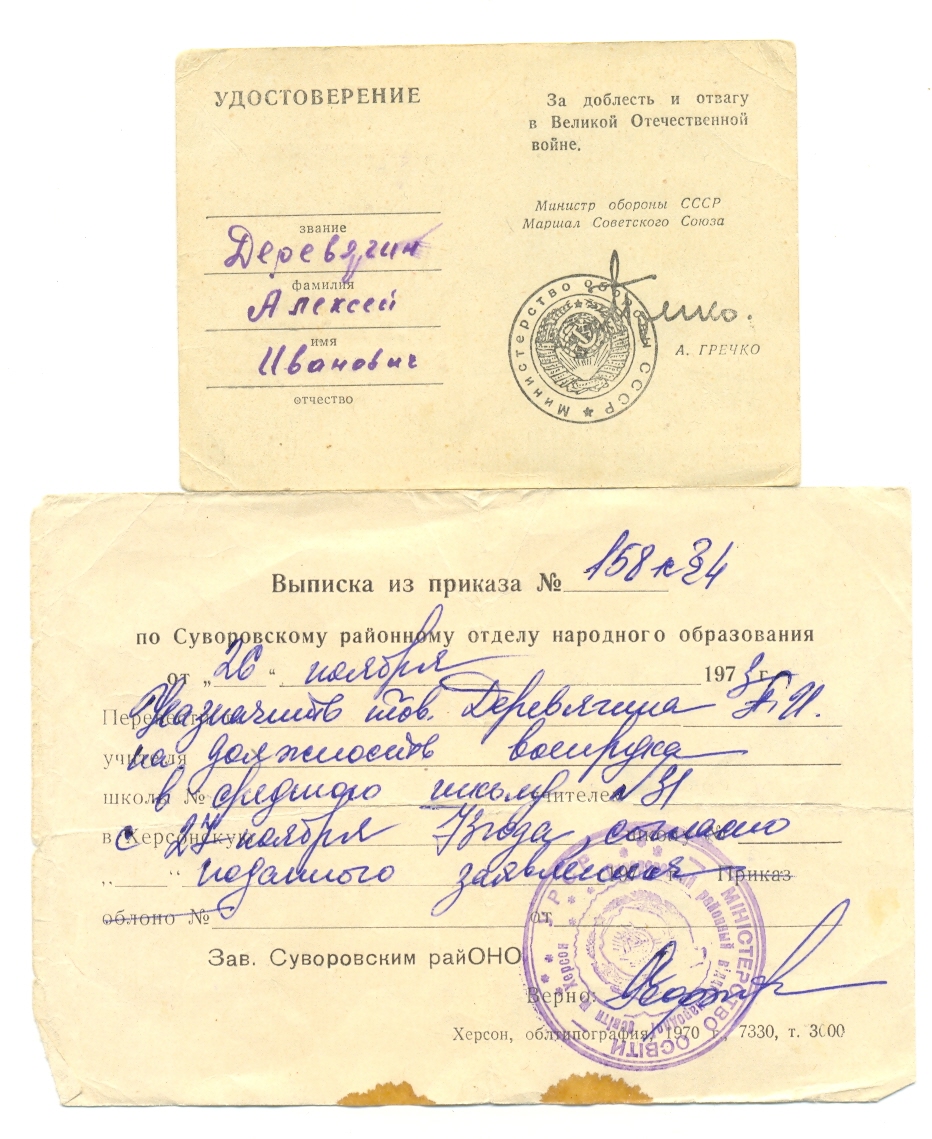 УДОСТОВЕРЕНИЕ
звание
Деревягин
фамилия
Алексей
имя
Иванович
отчество
За доблесть и отвагу
в Великой Отечественной
войне.
Министр обороны СССР
Маршал Советского Союза
Министерство Обороны СССР
А. ГРЕЧКО
Выписка из приказа № 158 к 34
по Суворовскому районному отделу народного образования
от „26“ ноября 1973 г.
Назначить тов. Деревягина А. И.
учителя на должность военрука
школы № в среднюю школу учителем № 31
в Херсонскую с 27 ноября 73 года согласно
„ “ поданного заявления Приказ
облоно № от
Зав. Суворовским райОНО
Верно:
МІНІСТЕРСТВО ОСВІТИ
Херсон, облтипография, 1970 г., 7330, т. 3000